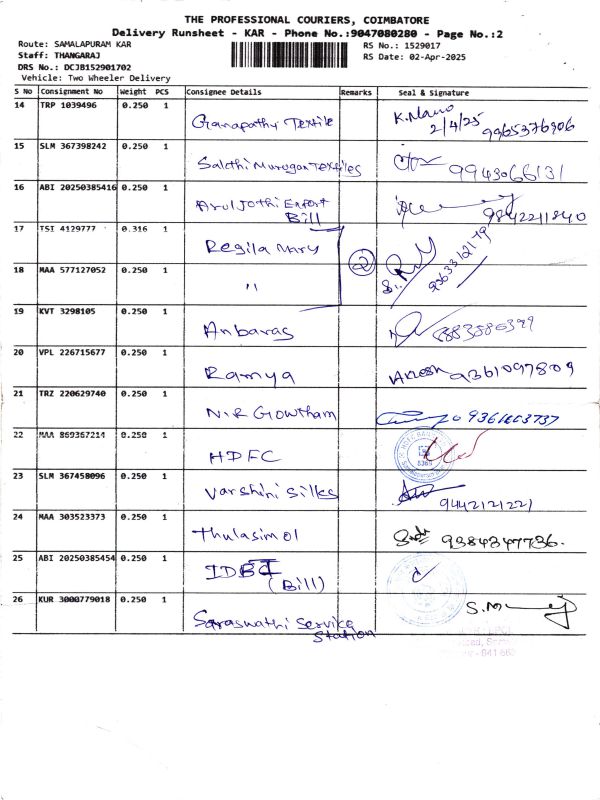 THE PROFESSIONAL COURIERS, COIMBATORE
Delivery Runsheet - KAR - Phone No.:9047080280 - Page No.:2
Route: SAMALAPURAM KAR
RS No.: 1529017
Staff: THANGARAJ
RS Date: 02-Apr-2025
DRS No.: DCJB152901702
Vehicle: Two Wheeler Delivery
S No Consignment No Weight PCS Consignee Details Remarks Seal & Signature
14 TRP 1039496 0.250 1 Ganapathy Textile K.Mano
2/4/25 9965376906
15 SLM 367398242 0.250 1 Sakthi Murugan Textiles 9943066131
16 ABI 20250385416 0.250 1 Aruljothi Enfort
Bill 9842211840
17 TSI 4129777 0.316 1 Regila Mary 2 9363312179
18 MAA 577127052 0.250 1 "
19 KVT 3298105 0.250 1 Anbaras
20 VPL 226715677 0.250 1 Ramya 9361097809
21 TRZ 220629740 0.250 1 N.R Gowtham
22 MAA 869367214 0.250 1 HDFC
23 SLM 367458096 0.250 1 Varshini Silks 9442121221
24 MAA 303523373 0.250 1 Thulasimol 9384347736.
25 ABI 20250385454 0.250 1 IDBI
(Bill)
26 KUR 3000779018 0.250 1 Saraswathi Service
Station